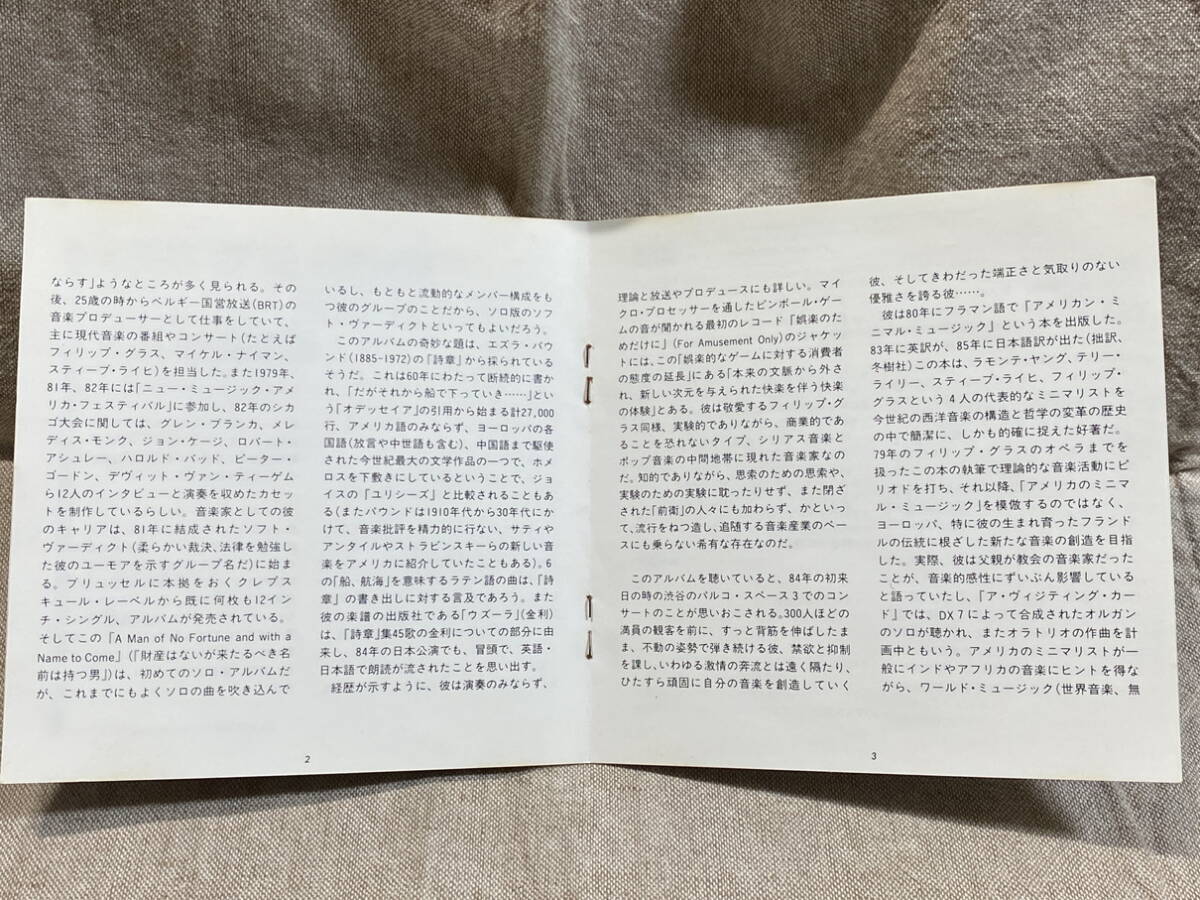 ならす」ようなところが多く見られる。その
後、25歳の時からベルギー国営放送(BRT)の
音楽プロデューサーとして仕事をしていて、
主に現代音楽の番組やコンサート(たとえば
フィリップ・グラス、マイケル・ナイマン、
スティーブ・ライヒ)を担当した。また1979年、
81年、82年には「ニュー・ミュージック・アメ
リカ・フェスティバル」に参加し、82年のシカ
ゴ大会に関しては、グレン・ブランカ、メレ
ディス・モンク、ジョン・ケージ、ロバート・
アシュレー、ハロルド・バッド、ピーター・
ゴードン、デヴィット・ヴァン・ティーゲム
ら12人のインタビューと演奏を収めたカセッ
トを制作しているらしい。音楽家としての彼
のキャリアは、81年に結成されたソフト・
ヴァーディクト(柔らかい裁決、法律を勉強し
た彼のユーモアを示すグループ名だ)に始ま
る。ブリュッセルに本拠をおくクレプス
キュール・レーベルから既に何枚も12イン
チ・シングル、アルバムが発売されている。
そしてこの「A Man of No Fortune and with a
Name to Come」(『財産はないが来たるべき名
前は持つ男』)は、初めてのソロ・アルバムだ
が、これまでにもよくソロの曲を吹き込んで
いるし、もともと流動的なメンバー構成をも
つ彼のグループのことだから、ソロ版のソフ
ト・ヴァーディクトといってもよいだろう。
このアルバムの奇妙な題は、エズラ・パウ
ンド(1885-1972)の「詩章」から採られている
そうだ。これは60年にわたって断続的に書か
れ、「だがそれから船で下っていき……」とい
う「オデッセイア」の引用から始まる計27,000
行、アメリカ語のみならず、ヨーロッパの各
国語(放言や中世語も含む)、中国語まで駆使
された今世紀最大の文学作品の一つで、ホメ
ロスを下敷きにしているということで、ジョ
イスの「ユリシーズ」と比較されることもあ
る(またパウンドは1910年代から30年代にか
けて、音楽批評を精力的に行ない、サティや
アンタイルやストラビンスキーらの新しい音
楽をアメリカに紹介していたこともある)。6
の「船、航海」を意味するラテン語の曲は、「詩
章」の書き出しに対する言及であろう。また
彼の楽譜の出版社である「ウズーラ」(金利)
は、「詩章」集45歌の金利についての部分に由
来し、84年の日本公演でも、冒頭で、英語・
日本語で朗読が流されたことを思い出す。
経歴が示すように、彼は演奏のみならず、
2
理論と放送やプロデュースにも詳しい。マイ
クロ・プロセッサーを通したピンボール・ゲー
ムの音が聞かれる最初のレコード「娯楽のた
めだけに」(For Amusement Only)のジャケッ
トには、この「娯楽的なゲームに対する消費者
の態度の延長」にある「本来の文脈から外さ
れ、新しい次元を与えられた快楽を伴う快楽
の体験」とある。彼は敬愛するフィリップ・グ
ラス同様、実験的でありながら、商業的であ
ることを恐れないタイプ、シリアス音楽と
ポップ音楽の中間地帯に現れた音楽家なの
だ。知的でありながら、思索のための思索や、
実験のための実験に耽ったりせず、また閉ざ
された「前衛」の人々にも加わらず、かといっ
て、流行をねつ造し、追随する音楽産業のペー
スにも乗らない希有な存在なのだ。
このアルバムを聴いていると、84年の初来
日の時の渋谷のパルコ・スペース3でのコン
サートのことが思いおこされる。300人ほどの
満員の観客を前に、すっと背筋を伸ばしたま
ま、不動の姿勢で弾き続ける彼、禁欲と抑制
を課し、いわゆる激情の奔流とは遠く隔たり、
ひたすら頑固に自分の音楽を創造していく
彼、そしてきわだった端正さと気取りのない
優雅さを誇る彼……。
彼は80年にフラマン語で「アメリカン・ミ
ニマル・ミュージック」という本を出版した。
83年に英訳が、85年に日本語訳が出た(拙訳、
冬樹社)この本は、ラモンテ・ヤング、テリー・
ライリー、スティーブ・ライヒ、フィリップ・
グラスという4人の代表的なミニマリストを
今世紀の西洋音楽の構造と哲学の変革の歴史
の中で簡潔に、しかも的確に捉えた好著だ。
79年のフィリップ・グラスのオペラまでを
扱ったこの本の執筆で理論的な音楽活動にピ
リオドを打ち、それ以降、「アメリカのミニマ
ル・ミュージック」を模倣するのではなく、
ヨーロッパ、特に彼の生まれ育ったフランド
ルの伝統に根ざした新たな音楽の創造を目指
した。実際、彼は父親が教会の音楽家だった
ことが、音楽的感性にずいぶん影響している
と語っていたし、「ア・ヴィジティング・カー
ド」では、DX7によって合成されたオルガン
のソロが聴かれ、またオラトリオの作曲を計
画中ともいう。アメリカのミニマリストが一
般にインドやアフリカの音楽にヒントを得な
がら、ワールド・ミュージック(世界音楽、無
3